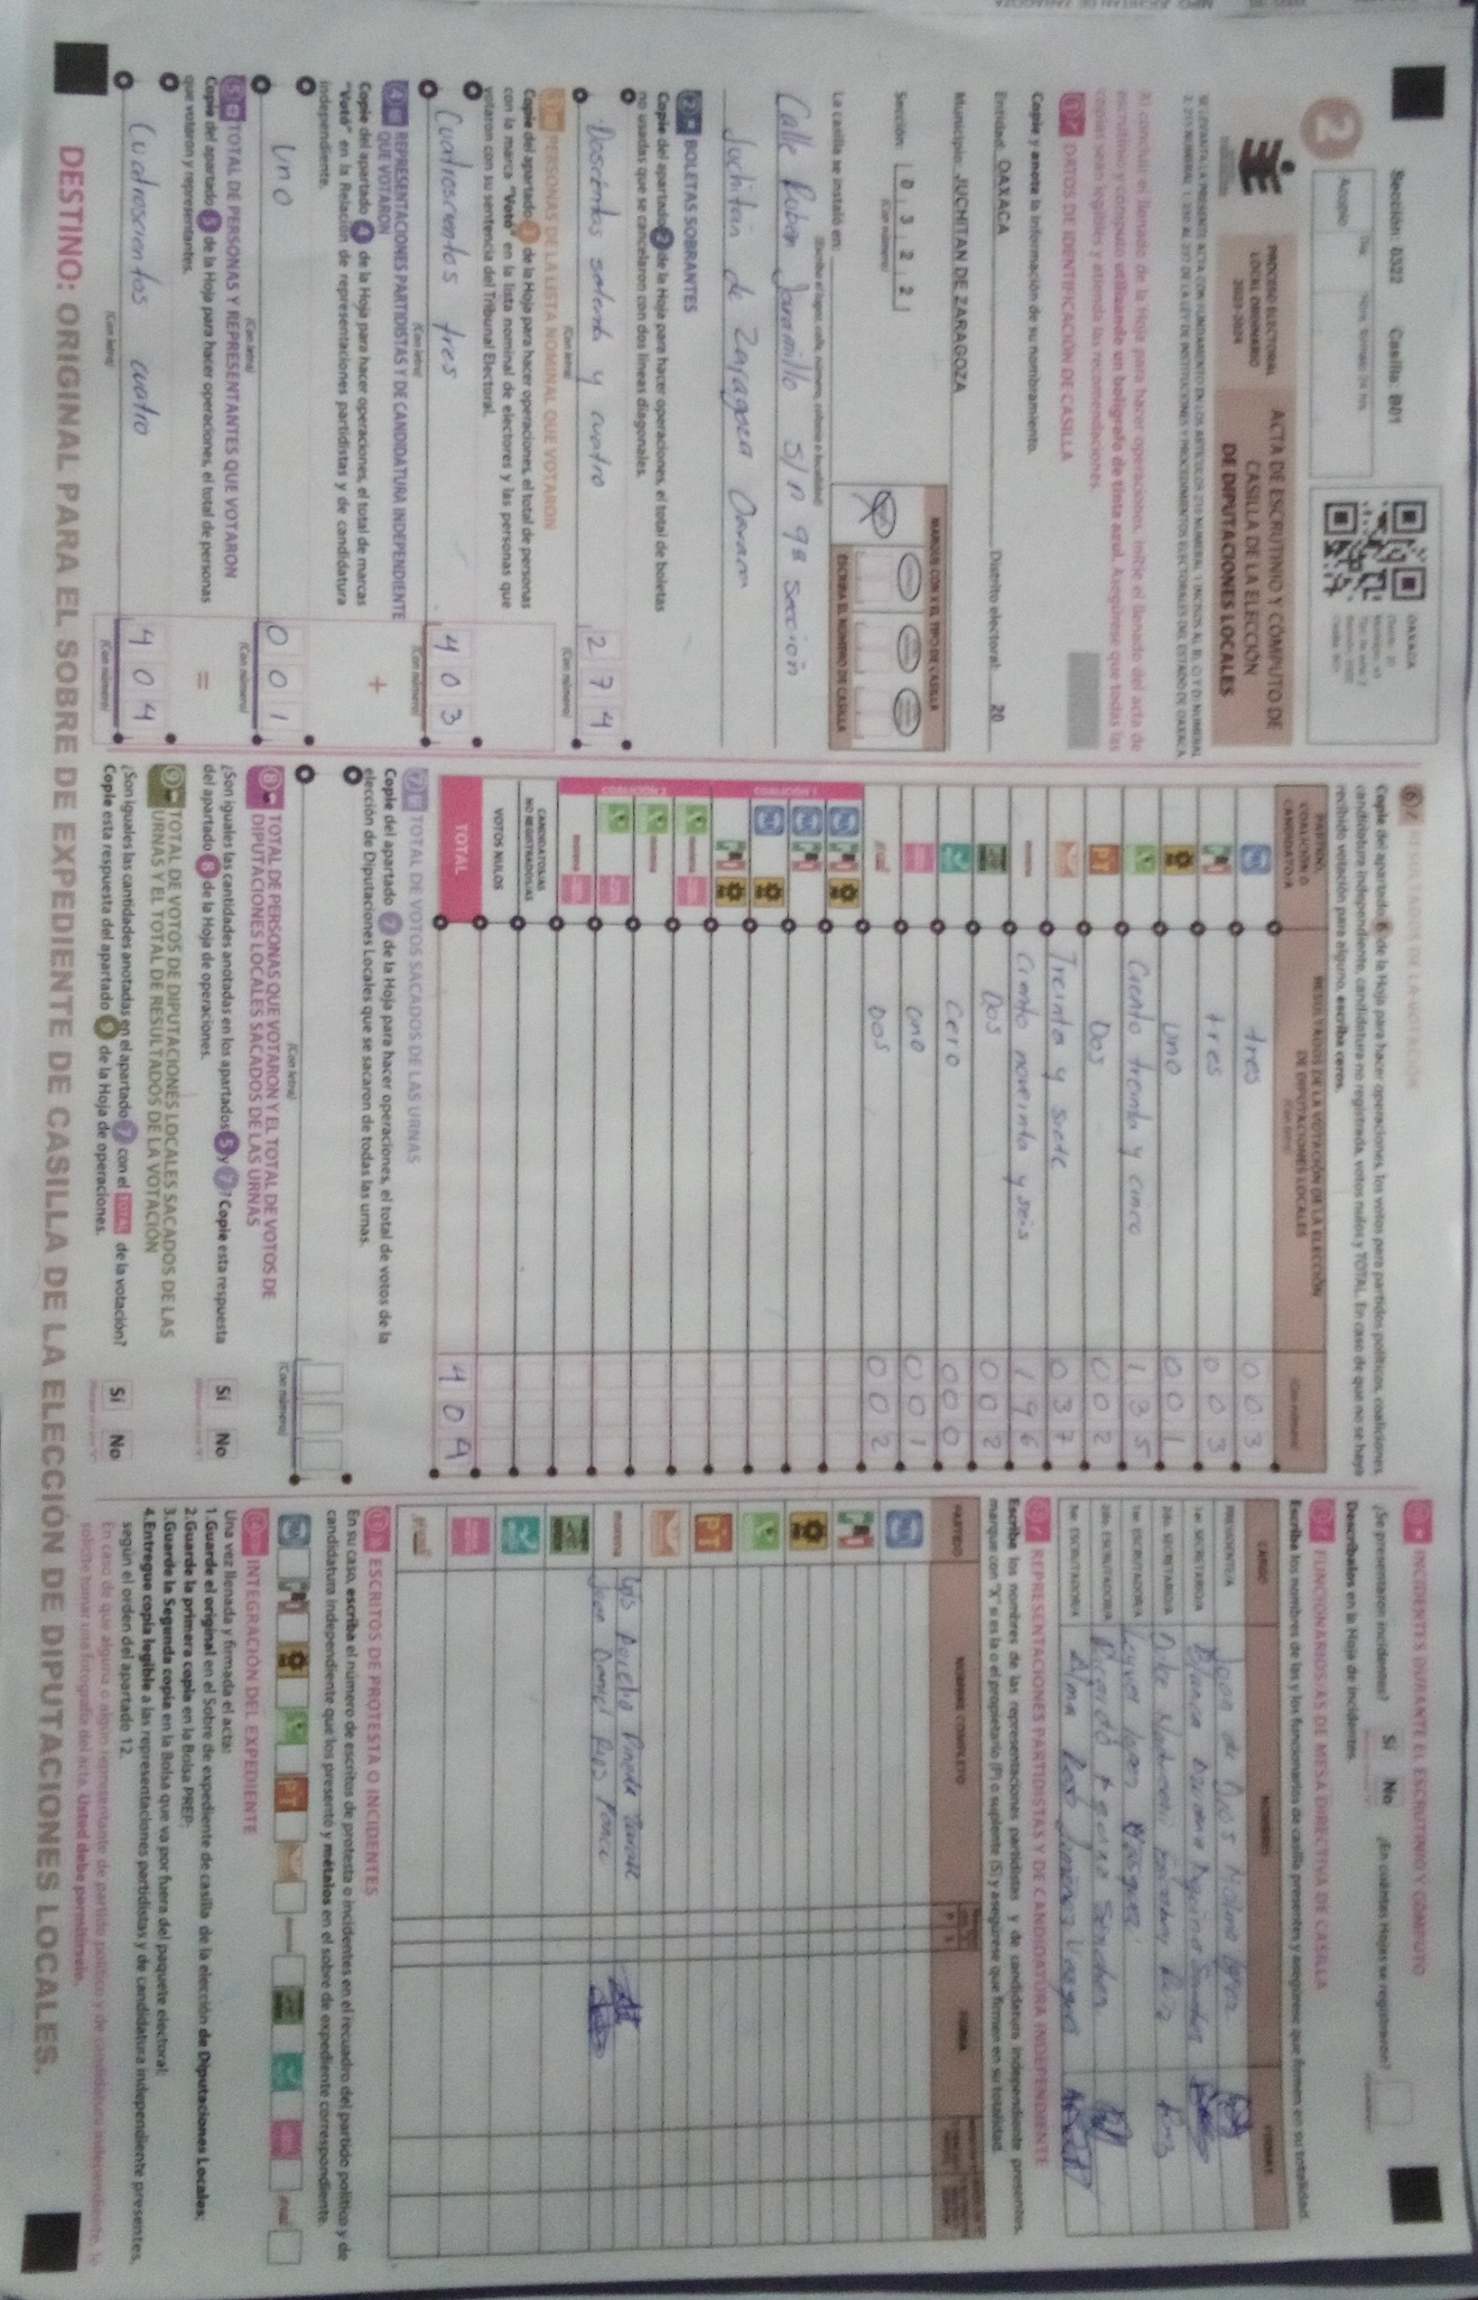 Sección: 0322 Casilla: B01
OAXACA
2
Acopio
PROCESO ELECTORAL
LOCAL ORDINARIO
2023-2024
ACTA DE ESCRUTINIO Y CÓMPUTO DE
CASILLA DE LA ELECCIÓN
DE DIPUTACIONES LOCALES
Al concluir el llenado de la Hoja para hacer operaciones, inicie el llenado del acta de
escrutinio y cómputo utilizando un bolígrafo de tinta azul. Asegúrese que todas las
copias sean legibles y atienda las recomendaciones.
1 DATOS DE IDENTIFICACIÓN DE CASILLA
Copie y anote la información de su nombramiento.
Entidad: OAXACA Distrito electoral: 20
Municipio: JUCHITAN DE ZARAGOZA
Sección: 0 3 2 2
(Con número)
MARQUE CON X EL TIPO DE CASILLA
ESCRIBA EL NÚMERO DE CASILLA
La casilla se instaló en:
(Escriba el lugar, calle, número, colonia o localidad)
Calle Ruben Jaramillo S/n 9ª Sección
Juchitán de Zaragoza Oaxaca
2 BOLETAS SOBRANTES
Copie del apartado 2 de la Hoja para hacer operaciones, el total de boletas
no usadas que se cancelaron con dos líneas diagonales.
Doscientas setenta y cuatro 2 7 4
(Con letra) (Con número)
3 PERSONAS DE LA LISTA NOMINAL QUE VOTARON
Copie del apartado 3 de la Hoja para hacer operaciones, el total de personas
con la marca "Votó" en la lista nominal de electores y las personas que
votaron con su sentencia del Tribunal Electoral.
Cuatroscientos tres 4 0 3
(Con letra) (Con número)
4 REPRESENTACIONES PARTIDISTAS Y DE CANDIDATURA INDEPENDIENTE
QUE VOTARON
Copie del apartado 4 de la Hoja para hacer operaciones, el total de marcas
"Votó" en la Relación de representaciones partidistas y de candidatura
independiente.
+
uno 0 0 1
(Con letra) (Con número)
5 TOTAL DE PERSONAS Y REPRESENTANTES QUE VOTARON
Copie del apartado 5 de la Hoja para hacer operaciones, el total de personas
que votaron y representantes.
=
Cuatroscientos cuatro 4 0 4
(Con letra) (Con número)
6 RESULTADOS DE LA VOTACIÓN
Copie del apartado 6 de la Hoja para hacer operaciones, los votos para partidos políticos, coaliciones,
candidatura independiente, candidatura no registrada, votos nulos y TOTAL. En caso de que no se haya
recibido votación para alguno, escriba ceros.
PARTIDO,
COALICIÓN O
CANDIDATO/A
RESULTADOS DE LA VOTACIÓN DE LA ELECCIÓN
DE DIPUTACIONES LOCALES
(Con letra) (Con número)
PAN tres 0 0 3
PRI tres 0 0 3
PRD uno 0 0 1
Ciento treinta y cinco 1 3 5
PT Dos 0 0 2
Treinta y siete 0 3 7
morena Ciento noveinta y seis 1 9 6
Dos 0 0 2
Cero 0 0 0
uno 0 0 1
Dos 0 0 2
CANDIDATOS/AS
NO REGISTRADOS/AS
VOTOS NULOS
TOTAL 4 0 4
7 TOTAL DE VOTOS SACADOS DE LAS URNAS
Copie del apartado 7 de la Hoja para hacer operaciones, el total de votos de la
elección de Diputaciones Locales que se sacaron de todas las urnas.
(Con letra) (Con número)
8 TOTAL DE PERSONAS QUE VOTARON Y EL TOTAL DE VOTOS DE
DIPUTACIONES LOCALES SACADOS DE LAS URNAS
¿Son iguales las cantidades anotadas en los apartados 5 y 7? Copie esta respuesta
del apartado 8 de la Hoja de operaciones.
Sí No
9 TOTAL DE VOTOS DE DIPUTACIONES LOCALES SACADOS DE LAS
URNAS Y EL TOTAL DE RESULTADOS DE LA VOTACIÓN
¿Son iguales las cantidades anotadas en el apartado 7 con el TOTAL de la votación?
Copie esta respuesta del apartado 9 de la Hoja de operaciones.
Sí No
10 INCIDENTES DURANTE EL ESCRUTINIO Y CÓMPUTO
¿Se presentaron incidentes? Sí No ¿En cuántas Hojas se registraron?
Descríbalos en la Hoja de incidentes.
11 FUNCIONARIOS/AS DE MESA DIRECTIVA DE CASILLA
Escriba los nombres de las y los funcionarios de casilla presentes y asegúrese que firmen en su totalidad.
CARGO NOMBRES FIRMAS
PRESIDENTE/A Juan de Dios
1er. SECRETARIO/A Blanca
2do. SECRETARIO/A
1er. ESCRUTADOR/A
2do. ESCRUTADOR/A Ricardo
3er. ESCRUTADOR/A Alma Jiménez Vasquez
12 REPRESENTACIONES PARTIDISTAS Y DE CANDIDATURA INDEPENDIENTE
Escriba los nombres de las representaciones partidistas y de candidatura independiente presentes,
marque con "X" si es la o el propietario (P) o suplente (S) y asegúrese que firmen en su totalidad.
PARTIDO NOMBRE COMPLETO FIRMA
PT
morena Pineda
Juan Daniel
13 ESCRITOS DE PROTESTA O INCIDENTES
En su caso, escriba el número de escritos de protesta o incidentes en el recuadro del partido político y de
candidatura independiente que los presentó y métalos en el sobre de expediente correspondiente.
14 INTEGRACIÓN DEL EXPEDIENTE
Una vez llenada y firmada el acta:
1.Guarde el original en el Sobre de expediente de casilla de la elección de Diputaciones Locales;
2.Guarde la primera copia en la Bolsa PREP;
3.Guarde la Segunda copia en la Bolsa que va por fuera del paquete electoral;
4.Entregue copia legible a las representaciones partidistas y de candidatura independiente presentes,
según el orden del apartado 12.
En caso de que alguna o algún representante de partido político y de candidatura independiente, le
solicite tomar una fotografía del acta. Usted debe permitírselo.
DESTINO: ORIGINAL PARA EL SOBRE DE EXPEDIENTE DE CASILLA DE LA ELECCIÓN DE DIPUTACIONES LOCALES.